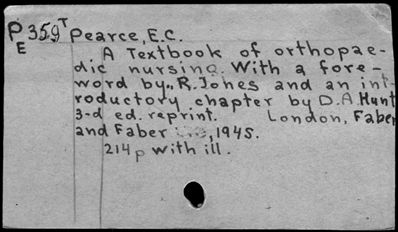 P 359 T Pearce, E.C.
E
A Textbook of orthopae-
dic nursing. With a fore-
word by.. R. Jones and an int-
roductory chapter by D.A. Hunt
3-d ed. reprint. London, Faber
and Faber , 1945.
214 p with ill.